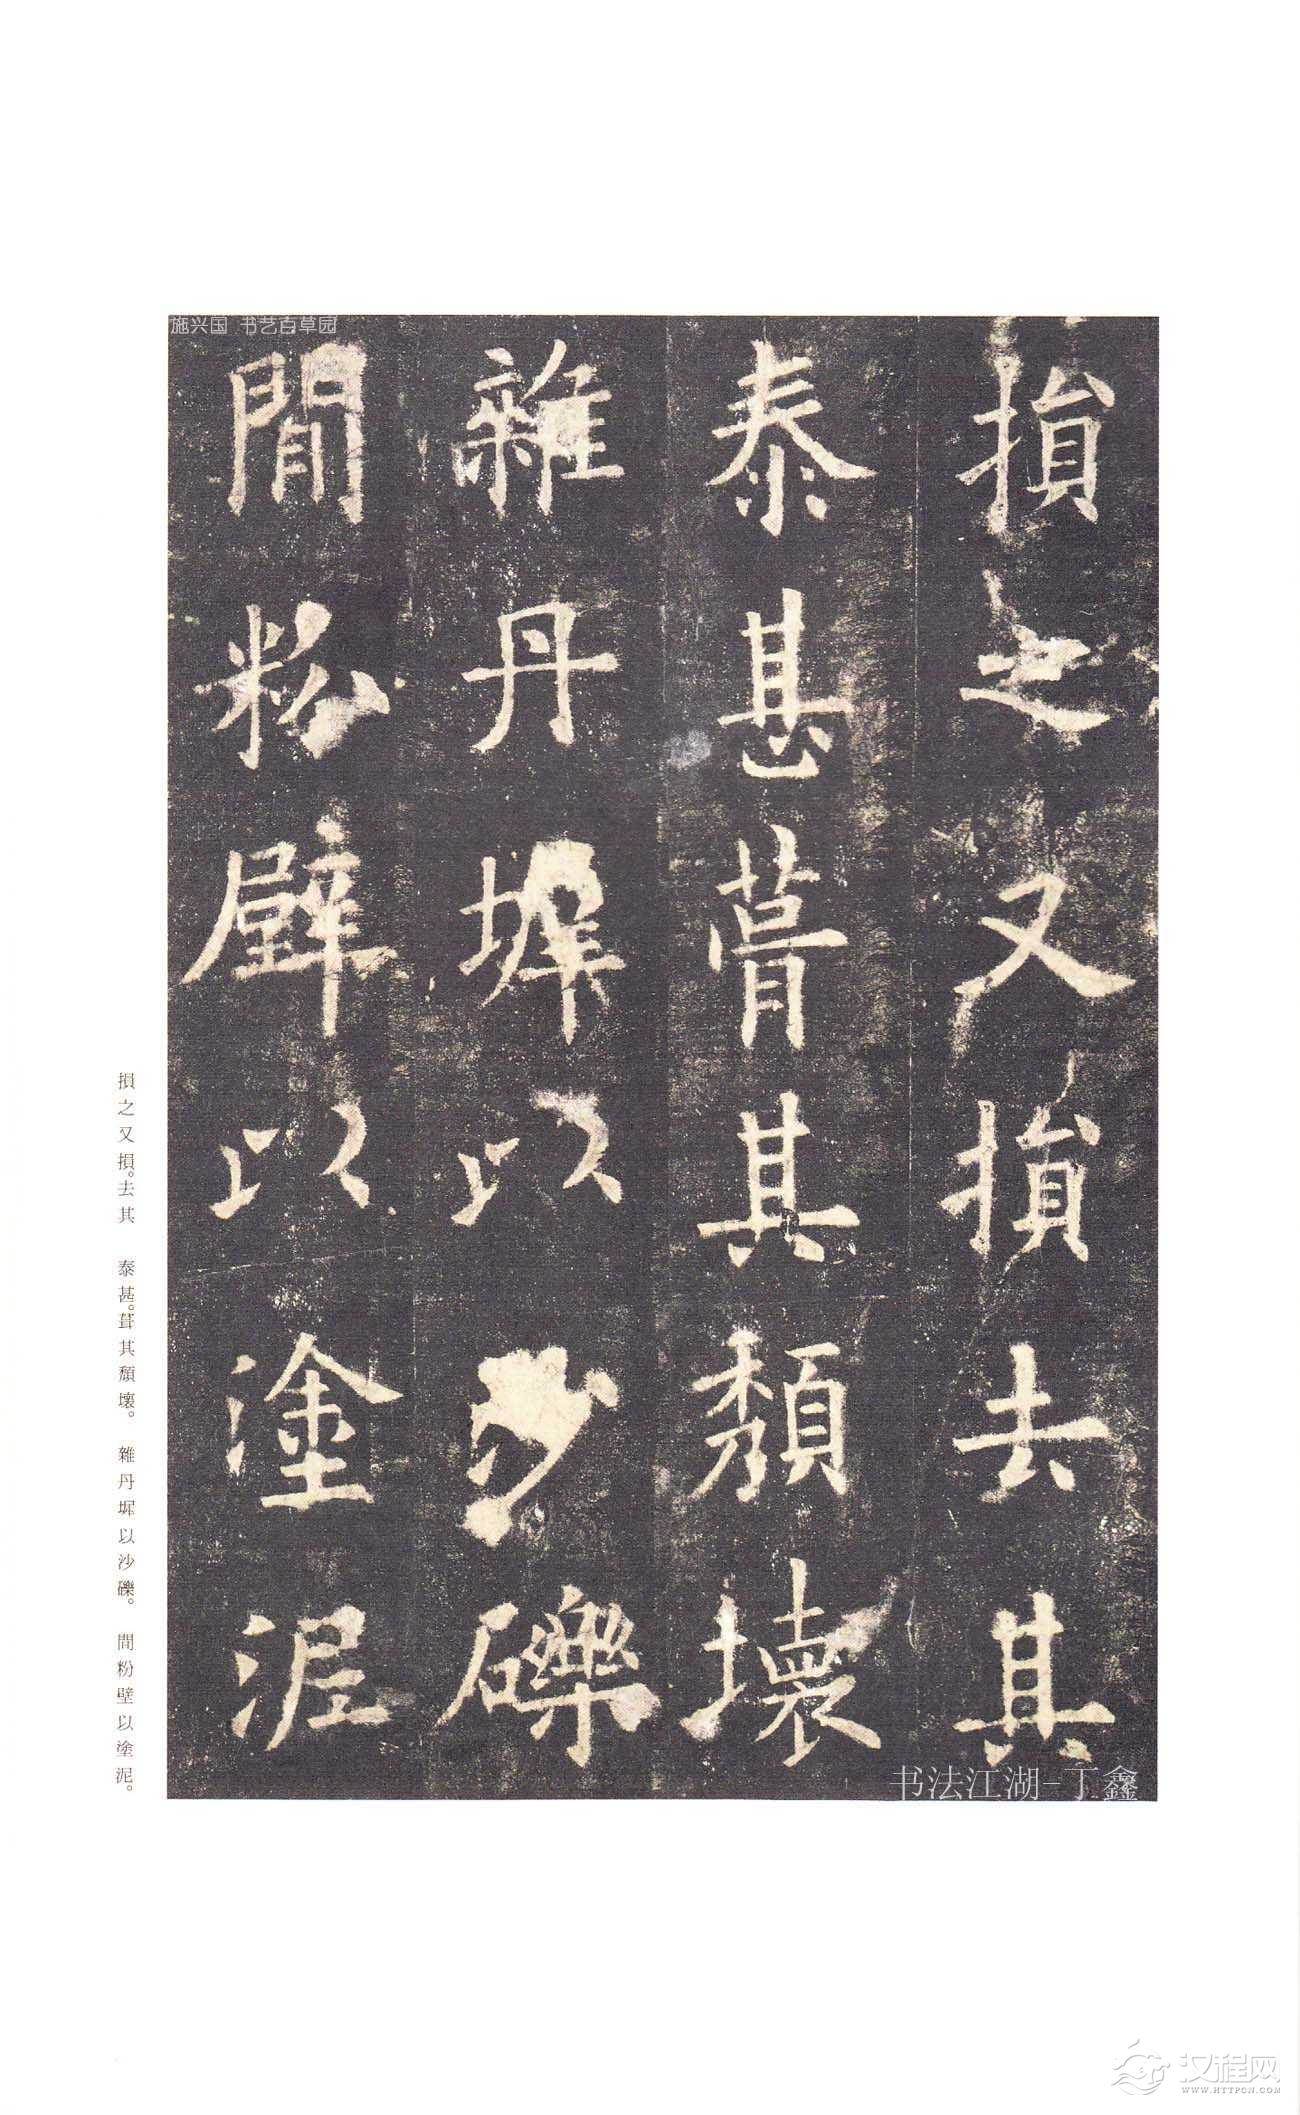 施兴国 书艺百草园
損之又損去其
泰甚葺其頹壞
雜丹墀以沙礫
間粉壁以塗泥
損之又損。去其 泰甚。葺其頹壞。 雜丹墀以沙礫。 間粉壁以塗泥。
书法江湖-丁鑫
汉程网
WWW.HTTPCN.COM